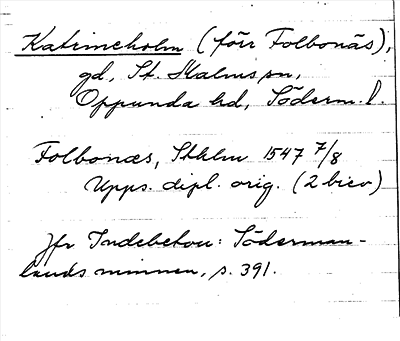 Katrineholm (förr Folbonäs),
gd, St. Malms sn,
Oppunda hd, Söderm. l.
Folbonæs, Sthlm 1547 7/8
Upps. dipl. orig. (2 brev)
Jfr Indebetou: Söderman-
lands minnen, s. 391.